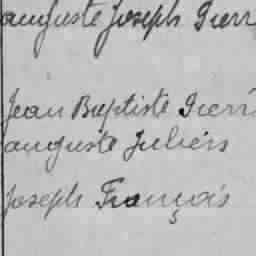 auguste Joseph Pierr
Jean Baptiste Pierr
auguste Juliers
Joseph François